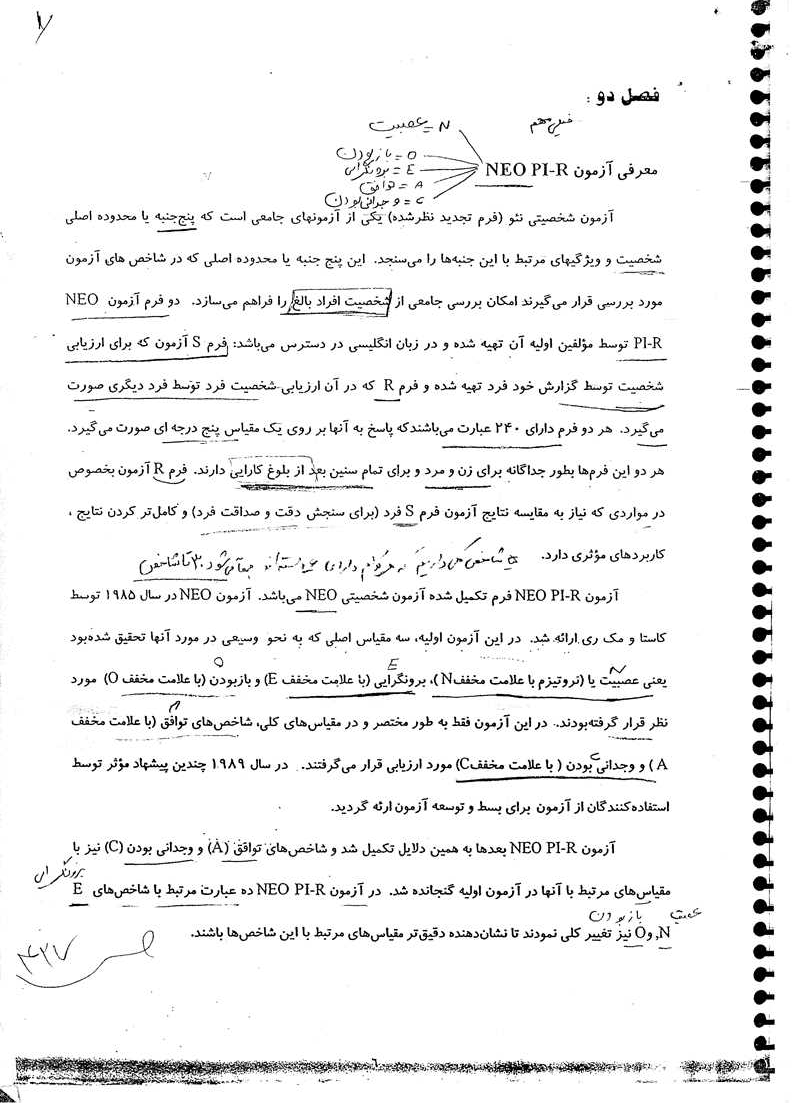 فصل دو :
خیلی مهم
N = عصبیت
O = باز بودن
E = برونگرایی
A = توافق
C = وجدانی بودن
معرفی آزمون NEO PI-R
آزمون شخصیتی نئو (فرم تجدید نظرشده) یکی از آزمونهای جامعی است که پنج‌جنبه یا محدوده اصلی
شخصیت و ویژگیهای مرتبط با این جنبه‌ها را می‌سنجد. این پنج جنبه یا محدوده اصلی که در شاخص های آزمون
مورد بررسی قرار می‌گیرند امکان بررسی جامعی از شخصیت افراد بالغ را فراهم می‌سازد. دو فرم آزمون NEO
PI-R توسط مؤلفین اولیه آن تهیه شده و در زبان انگلیسی در دسترس می‌باشد: فرم S آزمون که برای ارزیابی
شخصیت توسط گزارش خود فرد تهیه شده و فرم R که در آن ارزیابی شخصیت فرد توسط فرد دیگری صورت
می‌گیرد. هر دو فرم دارای ۲۴۰ عبارت می‌باشندکه پاسخ به آنها بر روی یک مقیاس پنج درجه ای صورت می‌گیرد.
هر دو این فرم‌ها بطور جداگانه برای زن و مرد و برای تمام سنین بعد از بلوغ کارایی دارند. فرم R آزمون بخصوص
در مواردی که نیاز به مقایسه نتایج آزمون فرم S فرد (برای سنجش دقت و صداقت فرد) و کامل‌تر کردن نتایج ،
کاربردهای مؤثری دارد.
شاخص داریم که هر کدام دارای جمعاً می‌شود ۳۰ تا شاخص
آزمون NEO PI-R فرم تکمیل شده آزمون شخصیتی NEO می‌باشد. آزمون NEO در سال ۱۹۸۵ توسط
کاستا و مک ری ارائه شد. در این آزمون اولیه، سه مقیاس اصلی که به نحو وسیعی در مورد آنها تحقیق شده‌بود
O E N
یعنی عصبیت یا (نروتیزم با علامت مخففN )، برونگرایی (با علامت مخفف E) و بازبودن (با علامت مخفف O) مورد
نظر قرار گرفته‌بودند. در این آزمون فقط به طور مختصر و در مقیاس‌های کلی، شاخص‌های توافق (با علامت مخفف
A ) و وجدانی بودن ( با علامت مخففC) مورد ارزیابی قرار می‌گرفتند. در سال ۱۹۸۹ چندین پیشنهاد مؤثر توسط
استفاده‌کنندگان از آزمون برای بسط و توسعه آزمون ارئه گردید.
آزمون NEO PI-R بعدها به همین دلایل تکمیل شد و شاخص‌های توافق (A) و وجدانی بودن (C) نیز با
برونگرایی
مقیاس‌های مرتبط با آنها در آزمون اولیه گنجانده شد. در آزمون NEO PI-R ده عبارت مرتبط با شاخص‌های E
عصبیت باز بودن
N, وO نیز تغییر کلی نمودند تا نشان‌دهنده دقیق‌تر مقیاس‌های مرتبط با این شاخص‌ها باشند.
۶